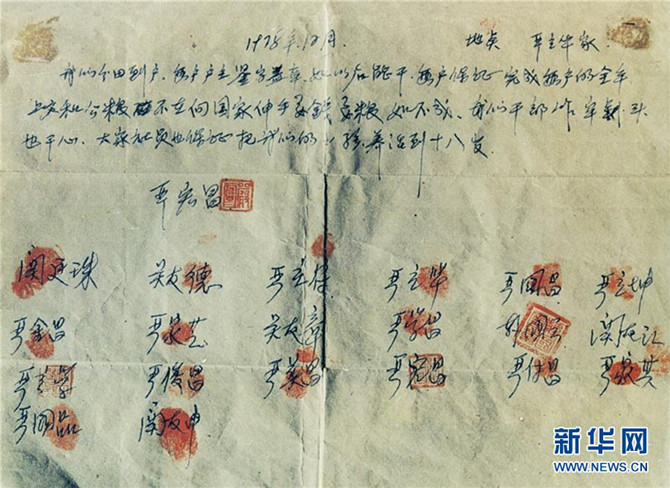 1978年12月. 地点 严立华家
我们分田到户,每户户主签字盖章,如以后能干,每户保证完成每户的全年
上交和公粮 不在向国家伸手要钱要粮,如不成,我们干部作牢刹头
也干心,大家社员也保证把我们的小孩养活到十八岁。
严宏昌
关廷珠 关友德 严立符 严立华 严国昌 严立坤
严金昌 严家芝 关友章 严学昌 韩国云 关友江
严立学 严俊昌 严美昌 严宏昌 严付昌 严家其
严国品 关友申
新华网
WWW.NEWS.CN